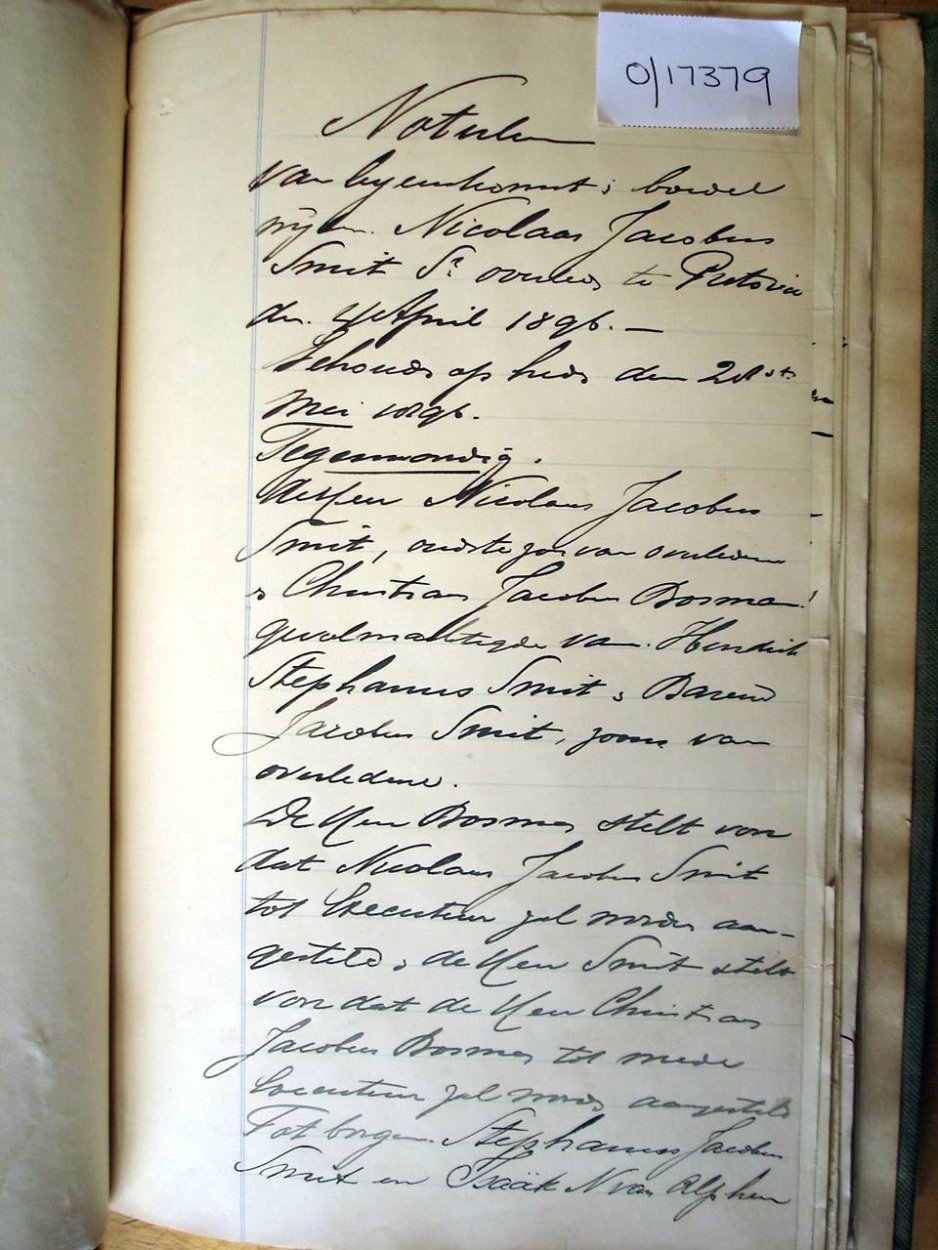 0/17379
Notulen
van byeenkomst; boedel
wijlen Nicolaas Jacobus
Smit Sr overleden te Pretoria
den 4 April 1896. —
Gehouden op heden den 21ste
Mei 1896.
Tegenwoordig.
de Heer Nicolaas Jacobus
Smit, oudste zoon van overledene
& Christiaan Jacobus Bosman
gevolmachtigde van Hendrik
Stephanus Smit & Barend
Jacobus Smit, zoons van
overledene.
De Heer Bosman stelt voor
dat Nicolaas Jacobus Smit
tot Executeur zal worden aan-
gesteld, & de Heer Smit stelt
voor dat de Heer Christiaan
Jacobus Bosman tot mede
Executeur zal worden aangesteld
Tot borgen Stephanus Jacobus
Smit en Isaäk N van Alphen